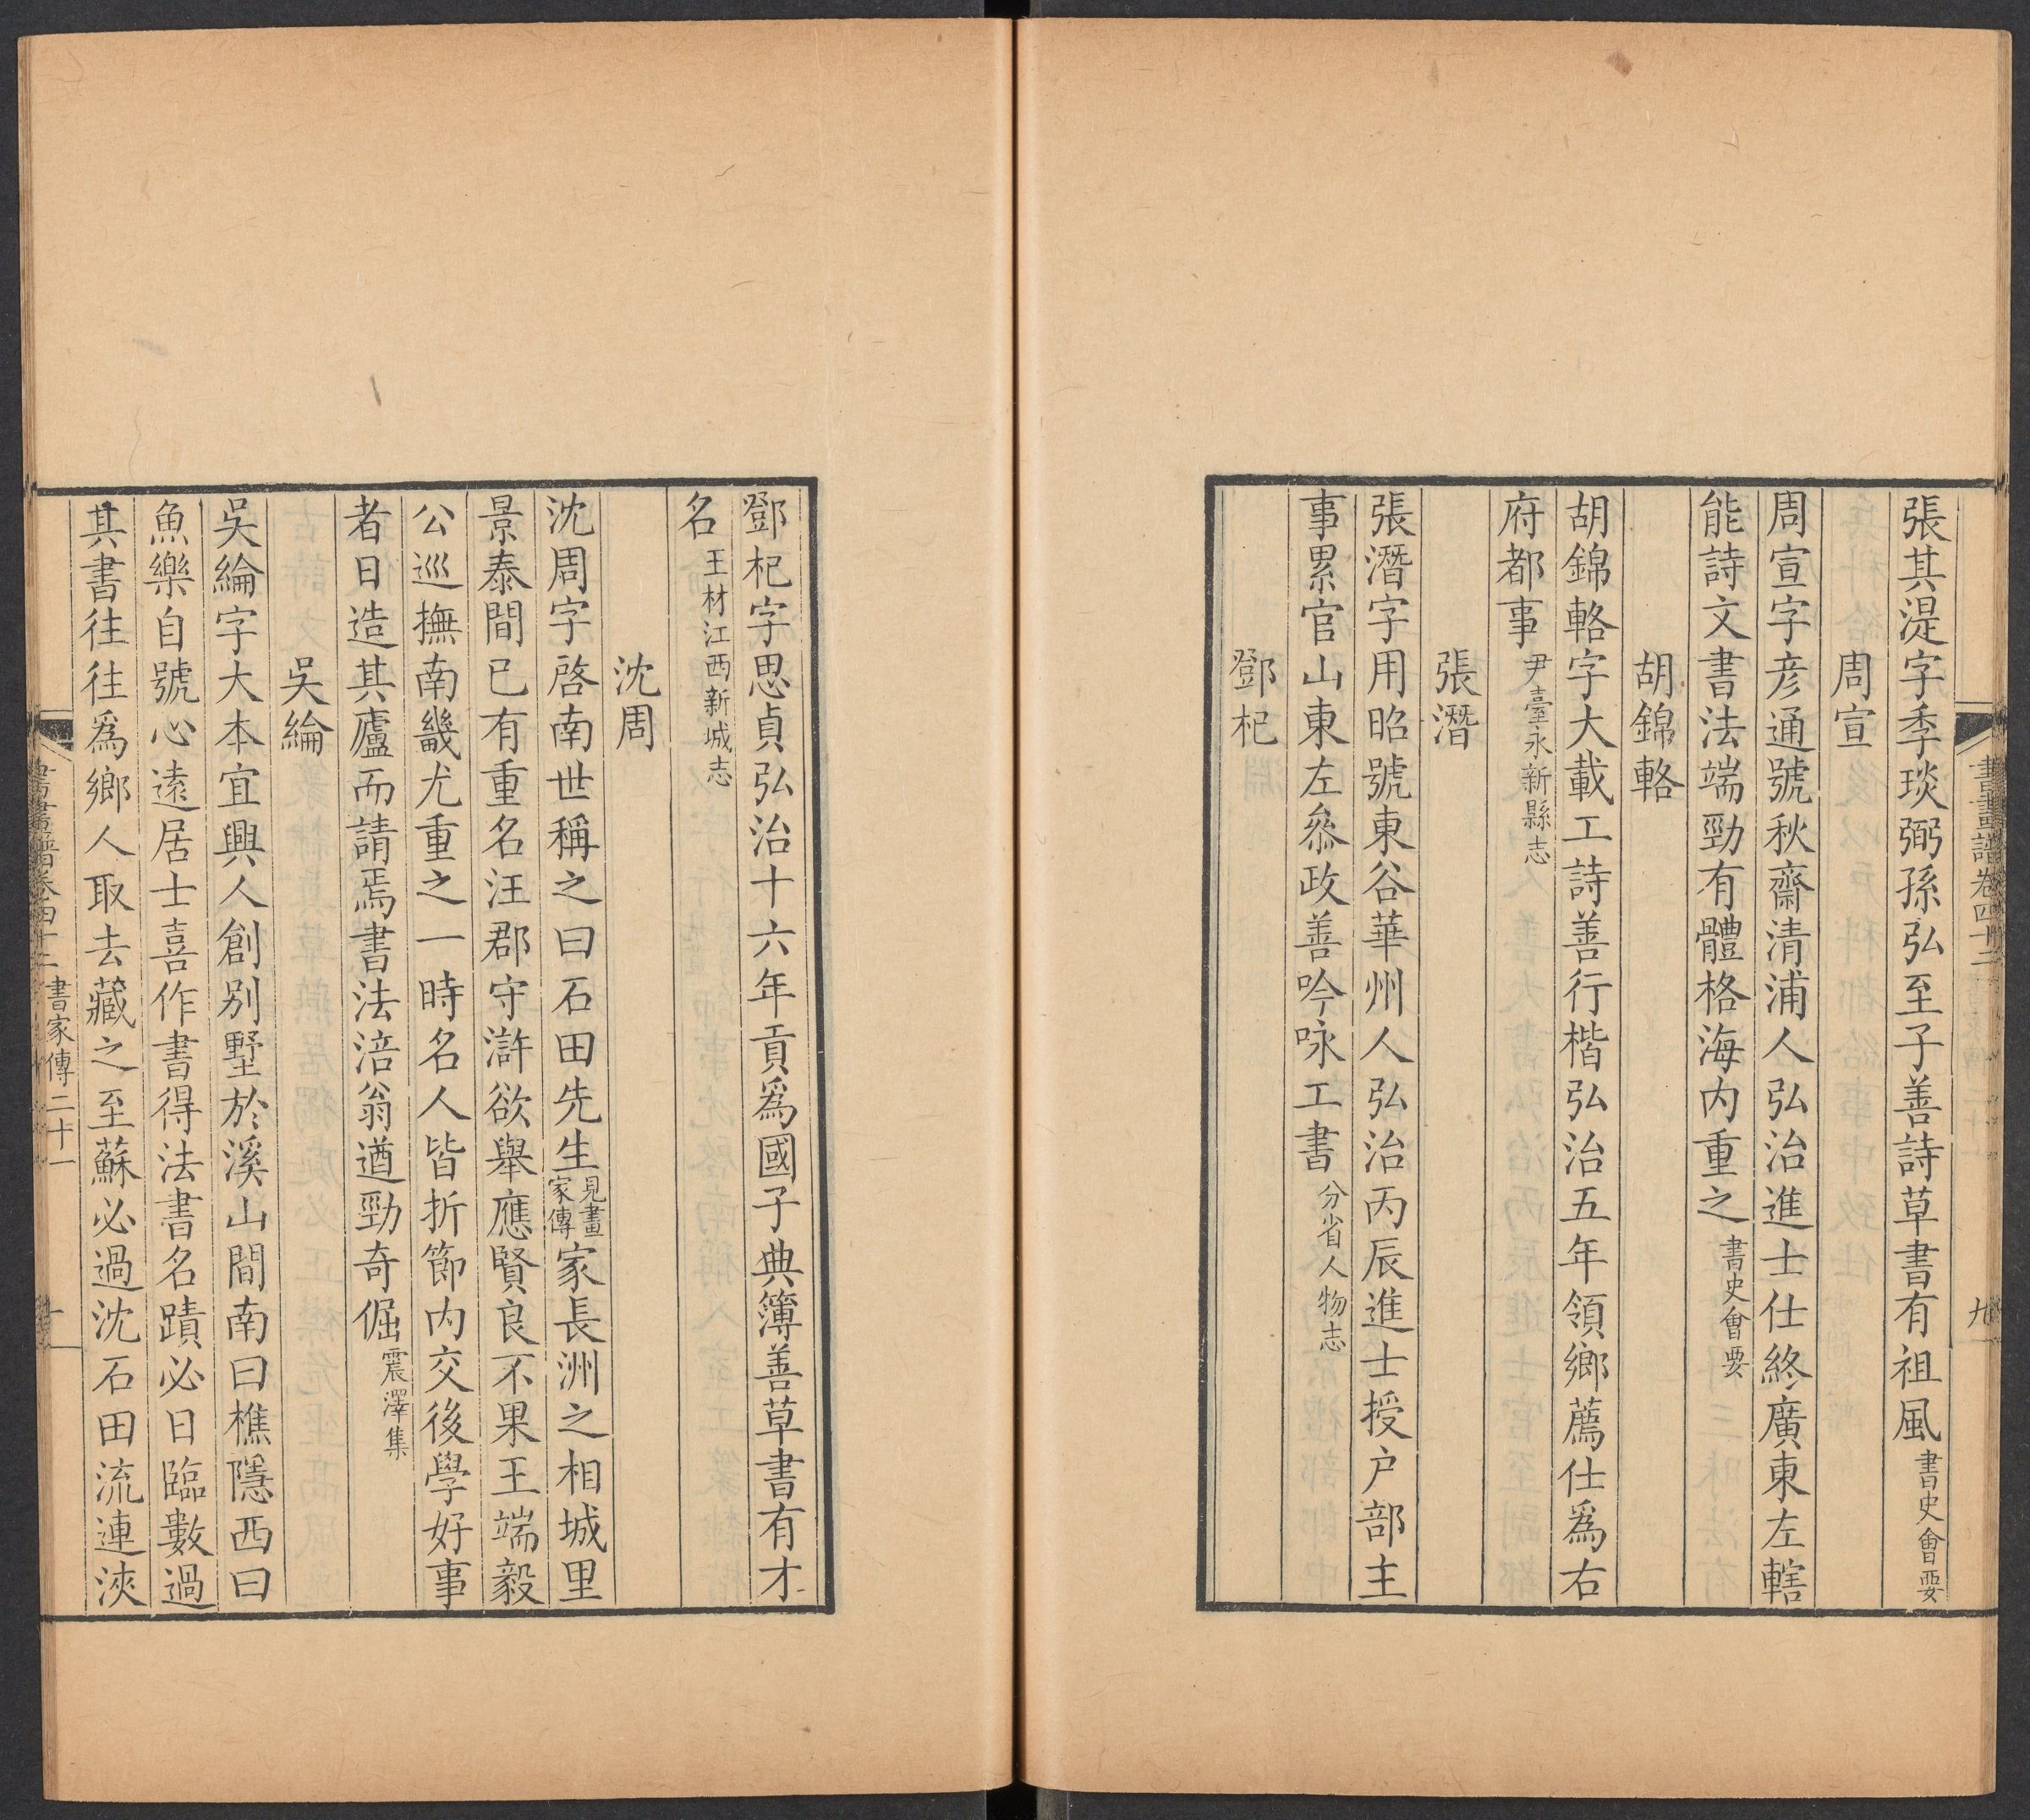 書畫譜卷四十二
九
張其湜字季琰弼孫弘至子善詩草書有祖風書史會要
周宣
周宣字彦通號秋齋清浦人弘治進士仕終廣東左轄
能詩文書法端勁有體格海内重之書史會要
胡錦輅
胡錦輅字大載工詩善行楷弘治五年領鄉薦仕爲右
府都事尹臺永新縣志
張潛
張潛字用昭號東谷華州人弘治丙辰進士授户部主
事累官山東左叅政善吟咏工書分省人物志
鄧杞
鄧杞字思貞弘治十六年貢爲國子典簿善草書有才
名王材江西新城志
沈周
沈周字啓南世稱之曰石田先生見畫家傳家長洲之相城里
景泰間已有重名汪郡守滸欲舉應賢良不果王端毅
公巡撫南畿尤重之一時名人皆折節内交後學好事
者日造其廬而請焉書法涪翁遒勁奇倔震澤集
吳綸
吳綸字大本宜興人創别墅於溪山間南曰樵隱西曰
魚樂自號心遠居士喜作書得法書名蹟必日臨數過
其書往往爲鄉人取去藏之至蘇必過沈石田流連浹
書畫譜卷四十二 書家傳二十一
十